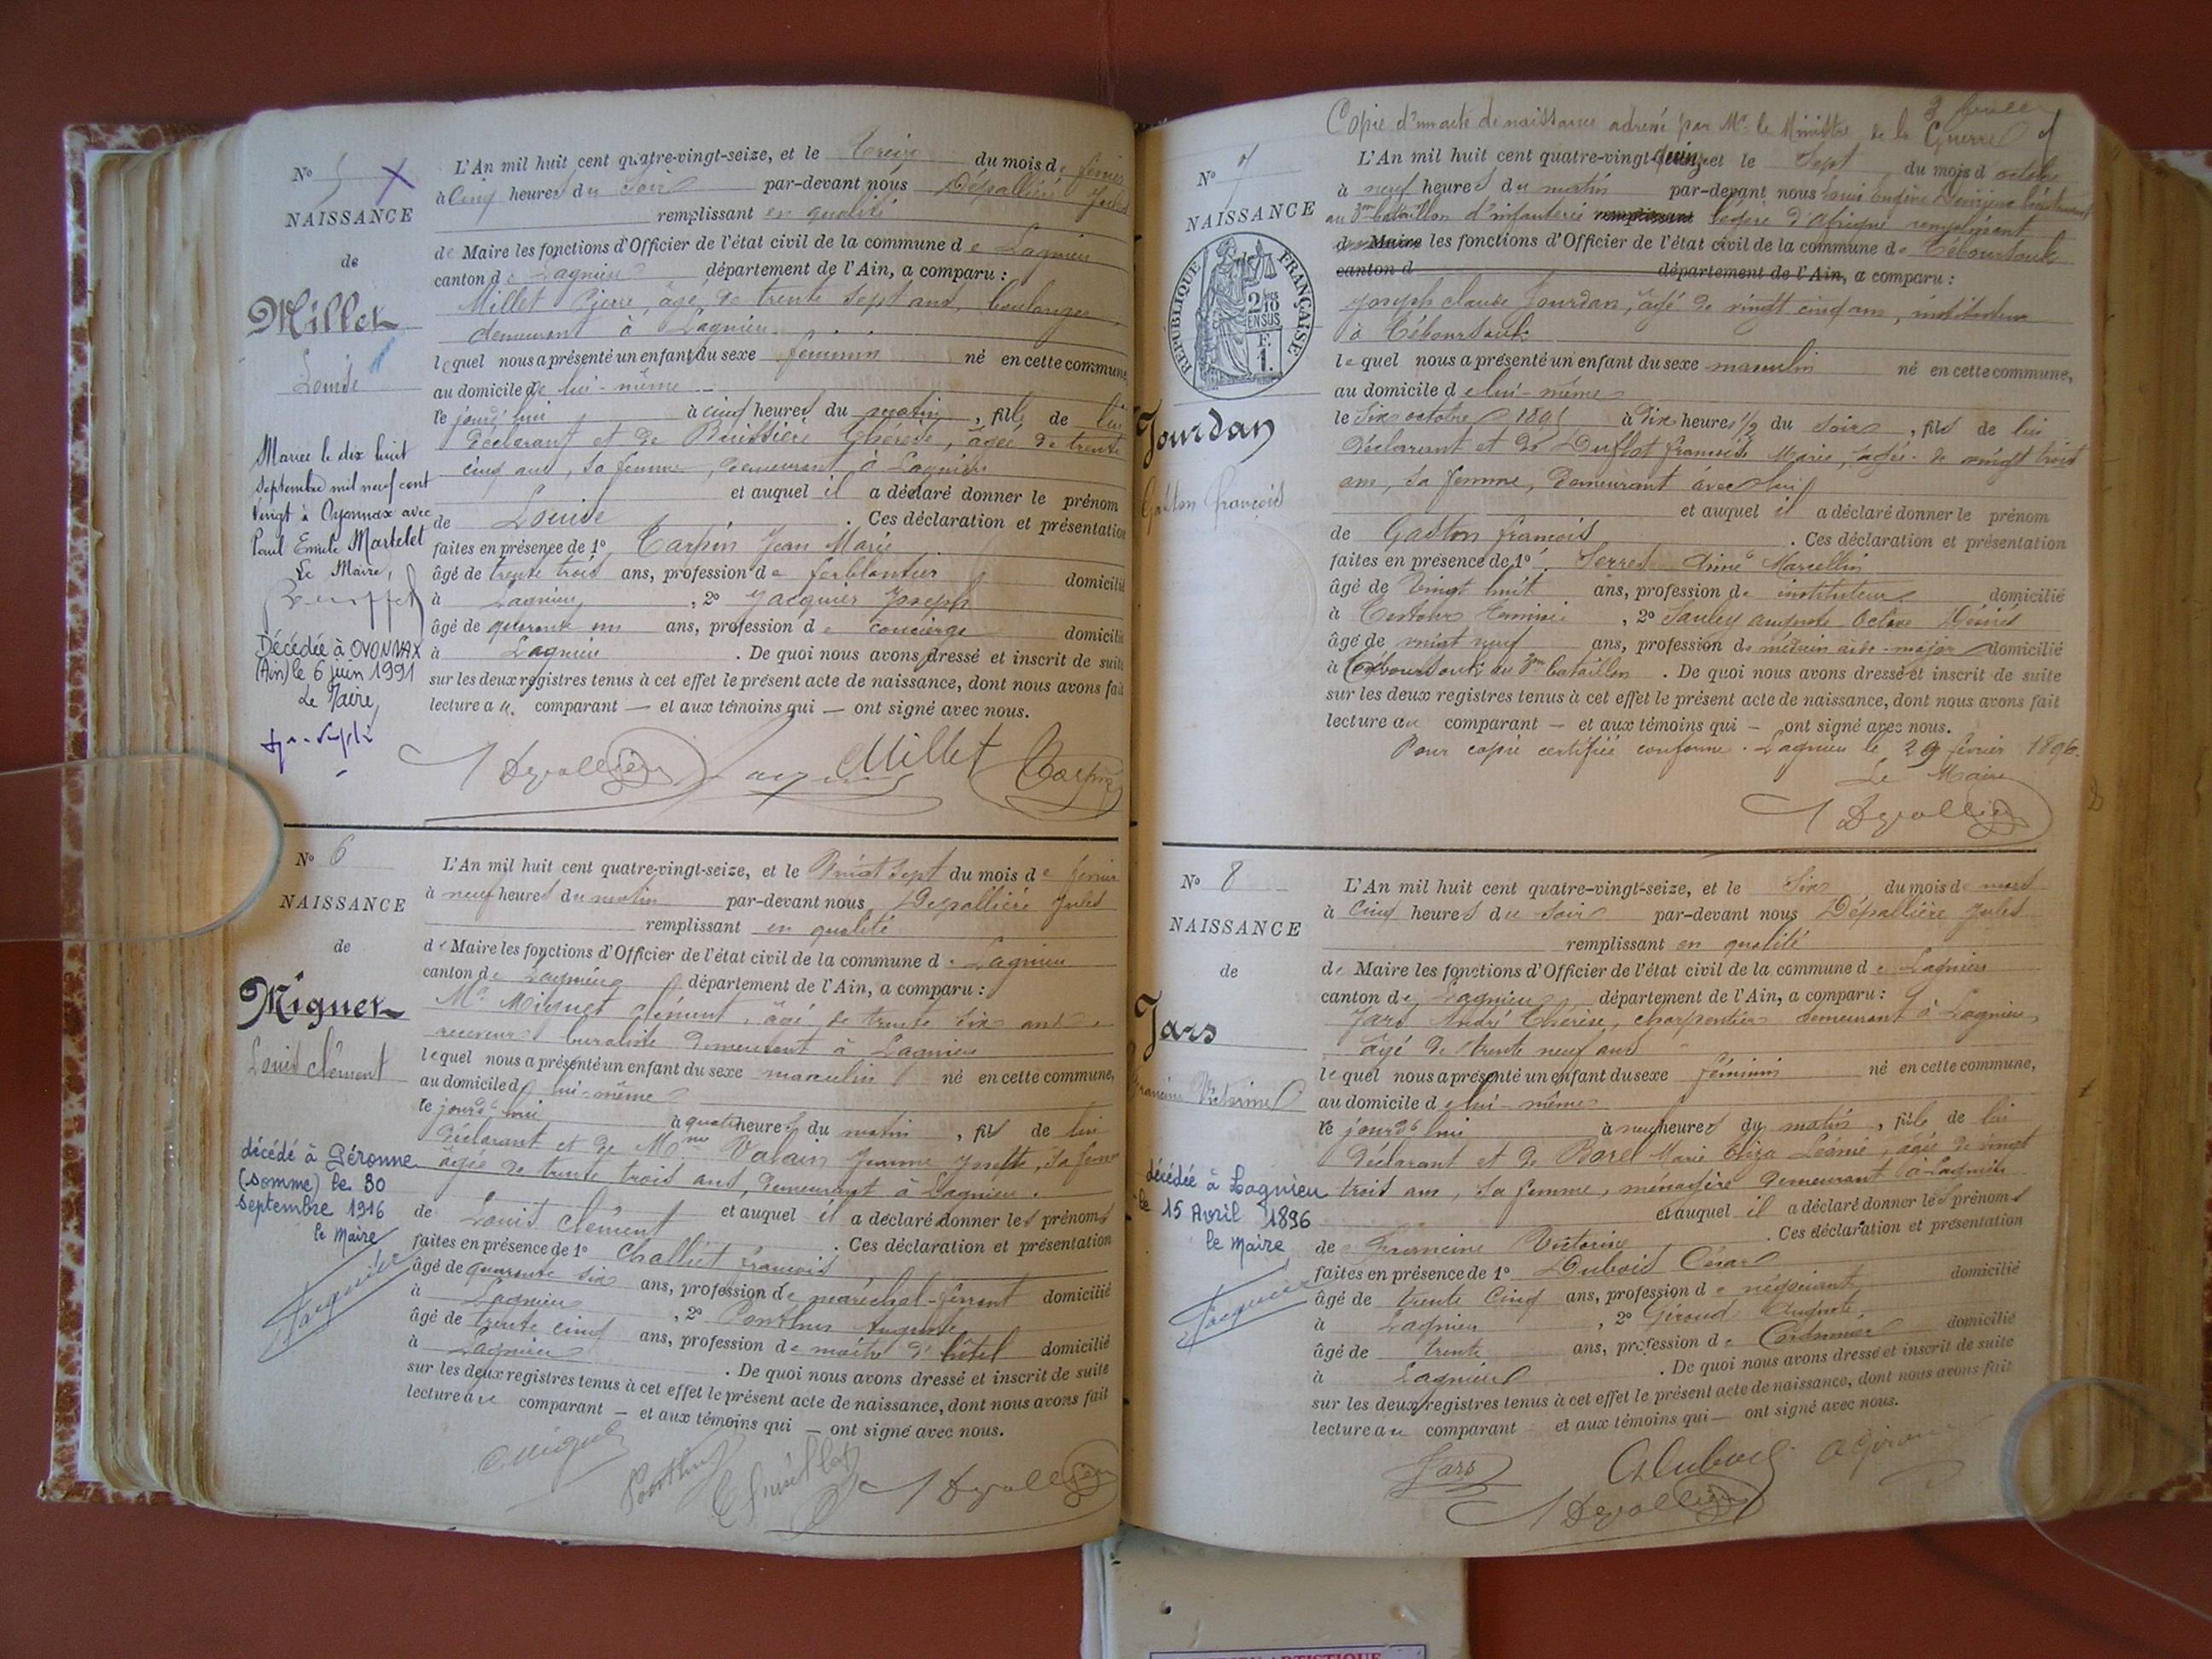 N° 5
NAISSANCE
de
Millet
Louise
Mariée le dix huit
septembre mil neuf cent
vingt à Oyonnax avec
Paul Emile Martelet
Le Maire,
Décédée à OYONNAX
(Ain) le 6 juin 1991
Le Maire,
L'An mil huit cent quatre-vingt-seize, et le treize du mois de février
à cinq heures du soir par-devant nous Dépallière Jules
remplissant en qualité
de Maire les fonctions d'Officier de l'état civil de la commune de Lagnieu
canton de Lagnieu département de l'Ain, a comparu :
Millet Pierre, âgé de trente sept ans, boulanger,
demeurant à Lagnieu
lequel nous a présenté un enfant du sexe féminin né en cette commune,
au domicile de lui-même
le jourd'hui à cinq heures du matin, fille de lui
déclarant et de Buissière Thérèse, âgée de trente
cinq ans, sa femme, demeurant à Lagnieu
et auquel il a déclaré donner le prénom
de Louise . Ces déclaration et présentation
faites en présence de 1° Carpin Jean Marie
âgé de trente trois ans, profession de ferblantier domicilié
à Lagnieu, 2° Jacquier Joseph
âgé de quarante un ans, profession de concierge domicilié
à Lagnieu . De quoi nous avons dressé et inscrit de suite
sur les deux registres tenus à cet effet le présent acte de naissance, dont nous avons fait
lecture au comparant — et aux témoins qui — ont signé avec nous.
Depallière Millet Carpin
N° 6
NAISSANCE
de
Miguet
Louis Clément
décédé à Péronne
(Somme) le 30
septembre 1916
le Maire
Jacquier
L'An mil huit cent quatre-vingt-seize, et le Vingt sept du mois de février
à neuf heures du matin par-devant nous Depallière Jules
remplissant en qualité
de Maire les fonctions d'Officier de l'état civil de la commune de Lagnieu
canton de Lagnieu département de l'Ain, a comparu :
Mr Miguet Clément, âgé de trente six ans,
receveur buraliste demeurant à Lagnieu
lequel nous a présenté un enfant du sexe masculin né en cette commune,
au domicile de lui-même
le jourd'hui à quatre heures du matin, fils de lui
déclarant et de Mme Valain Jeanne Josette, sa femme
âgée de trente trois ans, demeurant à Lagnieu.
et auquel il a déclaré donner les prénoms
de Louis Clément . Ces déclaration et présentation
faites en présence de 1° François
âgé de quarante six ans, profession de maréchal-ferrant domicilié
à Lagnieu, 2° Ponthus Auguste
âgé de trente cinq ans, profession de maître d'hôtel domicilié
à Lagnieu . De quoi nous avons dressé et inscrit de suite
sur les deux registres tenus à cet effet le présent acte de naissance, dont nous avons fait
lecture au comparant — et aux témoins qui — ont signé avec nous.
Miguet Ponthus Depallière
Copie d'un acte de naissance adressé par Mr le Ministre de la Guerre
N° 7
NAISSANCE
de
RÉPUBLIQUE FRANÇAISE
2/10 EN SUS
F.
1.
Jourdan
Gaston François
L'An mil huit cent quatre-vingt-quinze et le Sept du mois d octobre
à neuf heures du matin par-devant nous Louis Eugène lieutenant
au 3me bataillon d'infanterie remplissant légère d'Afrique remplissant
de Maire les fonctions d'Officier de l'état civil de la commune de Téboursouk
canton d département de l'Ain, a comparu :
Joseph Claude Jourdan, âgé de vingt cinq ans, instituteur
à Téboursouk
lequel nous a présenté un enfant du sexe masculin né en cette commune,
au domicile de lui-même
le Six octobre 1895 à dix heures 1/2 du soir, fils de lui
déclarant et de Duflot Françoise Marie, âgée de vingt trois
ans, sa femme, demeurant avec lui
et auquel il a déclaré donner le prénom
de Gaston François . Ces déclaration et présentation
faites en présence de 1° Serres Aimé Marcellin
âgé de Vingt huit ans, profession de instituteur domicilié
à , 2° Auguste Octave Désiré
âgé de vingt neuf ans, profession de médecin aide-major domicilié
à Téboursouk au 3me bataillon . De quoi nous avons dressé et inscrit de suite
sur les deux registres tenus à cet effet le présent acte de naissance, dont nous avons fait
lecture au comparant — et aux témoins qui — ont signé avec nous.
Pour copie certifiée conforme. Lagnieu le 29 février 1896.
Le Maire
Depallière
N° 8
NAISSANCE
de
Jars
Francine Victorine
décédée à Lagnieu
le 15 Avril 1896
le Maire
Jacquier
L'An mil huit cent quatre-vingt-seize, et le Six du mois de mars
à Cinq heures du soir par-devant nous Dépallière Jules
remplissant en qualité
de Maire les fonctions d'Officier de l'état civil de la commune de Lagnieu
canton de Lagnieu département de l'Ain, a comparu :
Jars André Thérèse, charpentier demeurant à Lagnieu,
âgé de trente neuf ans
lequel nous a présenté un enfant du sexe féminin né en cette commune,
au domicile de lui-même
le jourd'hui à neuf heures du matin, fille de lui
déclarant et de Borel Marie Eliza Léonie, âgée de vingt
trois ans, sa femme, ménagère demeurant à Lagnieu
et auquel il a déclaré donner les prénoms
de Francine Victorine . Ces déclaration et présentation
faites en présence de 1° Dubois César
âgé de trente cinq ans, profession de négociant domicilié
à Lagnieu, 2° Giroud Auguste,
âgé de trente ans, profession de Cordonnier domicilié
à Lagnieu . De quoi nous avons dressé et inscrit de suite
sur les deux registres tenus à cet effet le présent acte de naissance, dont nous avons fait
lecture au comparant et aux témoins qui — ont signé avec nous.
Jars C Dubois A Giroud
Depallière